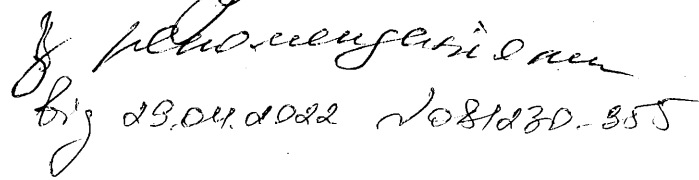 з рекомендаціями
від 29.04.2022 №081230-355